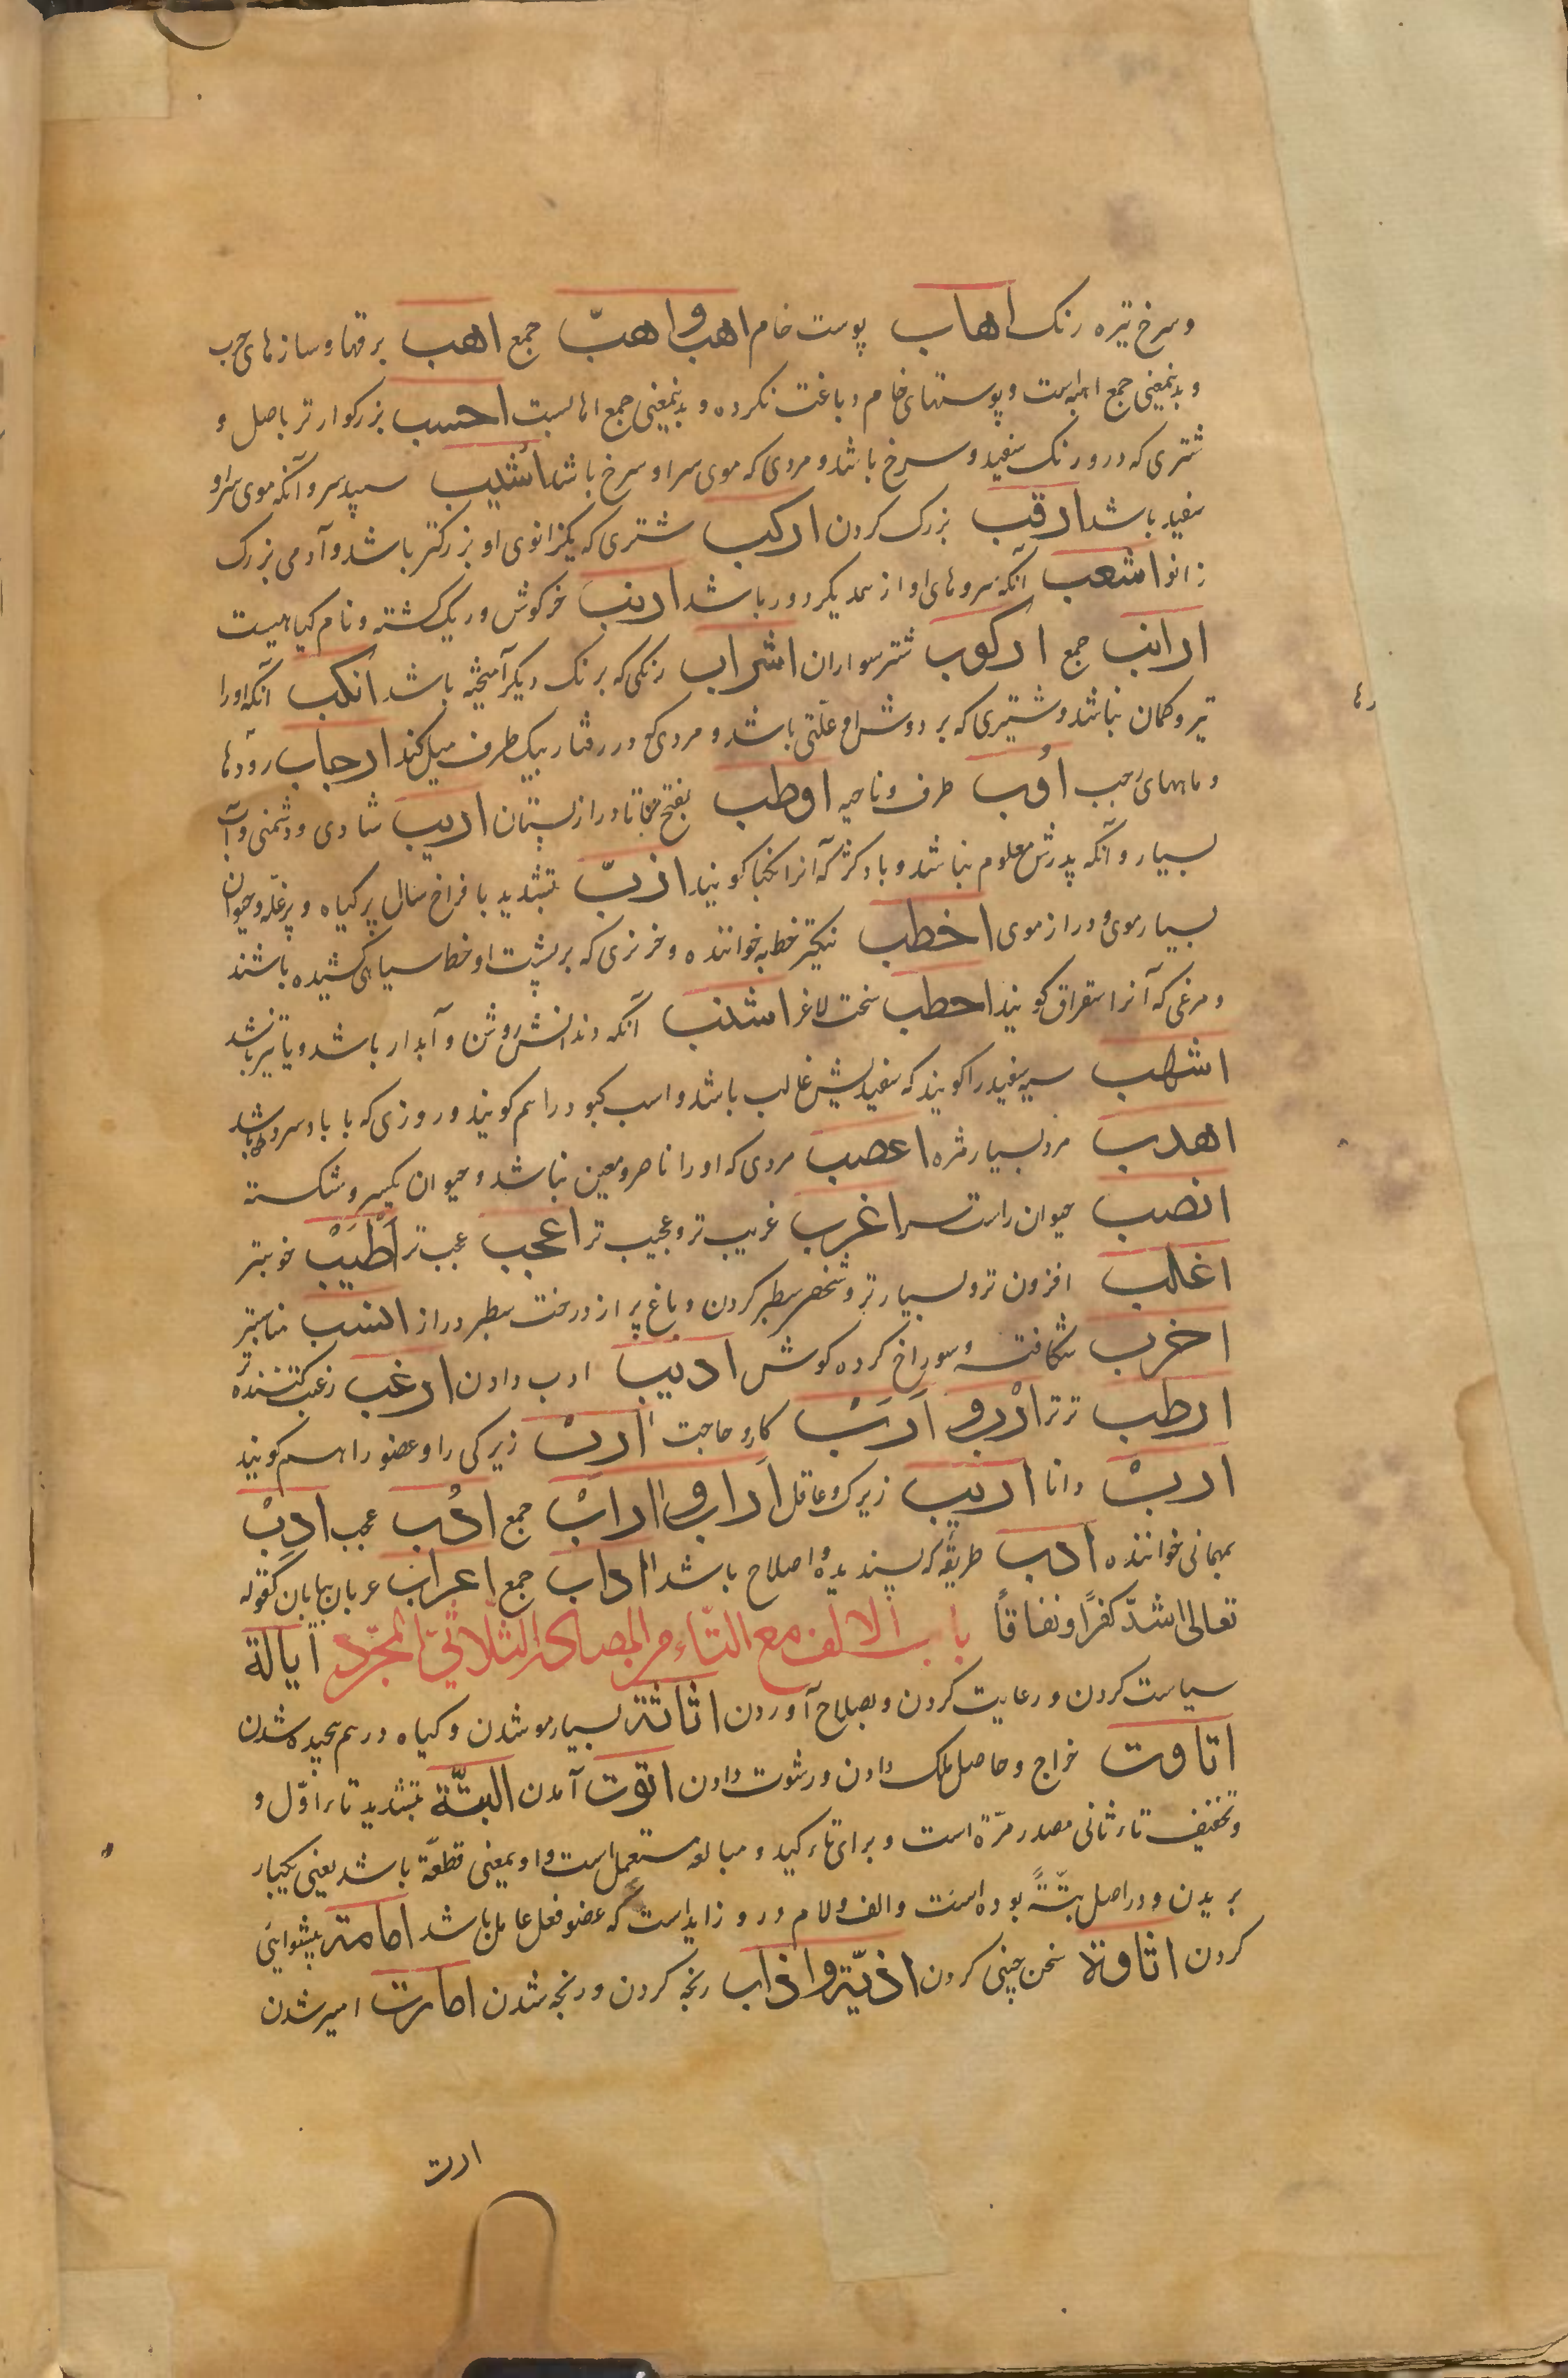 و سرخ تیره رنک اهاب پوست خام اهب و اهبّ جمع اهب برقها و سازهای حرب
و بدینمعنی جمع اهبه است و پوستهای خام دباغت نکرده و بدینمعنی جمع اهابست احسب بزرکوارتر باصل و
شتری که درو رنک سفید و سرخ باشد و مردی که موی سر او سرخ باشد اشیب سپید سر و آنکه موی سر او
سفید باشد ارقب بزرک کردن ارکب شتری که یکزانوی او بزرکتر باشد و آدمی بزرک
زانو اشعب آنکه سروهای او از همدیکر دور باشد ارنب خرکوش و ریک پشته و نام کیاهیست
ارانب جمع ارکوب شتر سواران اشراب رنکی که برنک دیکر آمیخته باشد انکب آنکه او را
تیر و کمان نباشد و شتیری که بر دوش او علّتی باشد و مردی که در رفتار بیک طرف میل کند ارجاب رودها
رها
و ماههای رجب اُوب طرف و ناحیه اوطب بفتح طا دراز پستان ازیب شادی و دشمنی و آب
بسیار و آنکه پدرش معلوم نباشد و باد کژ که آنرا نکبا کویند ازبّ بتشدید با فراخ سال پر کیاه و پر غلّه و حیوان
بسیار موی و دراز موی اخطب نیکتر خطبه خواننده و خر نری که بر پشت او خط سیاهی کشیده باشند
و مرغی که آنرا سقراق کویند احطب سخت لاغر اشنب آنکه دندانش روشن و آبدار باشد و یا تیز باشد
اشهب سیه سفید را کویند که سفیدیش غالب باشد و اسب کبود را هم کویند و روزی که با باد سرد باشد
اهدب مرد بسیار مژه اعصب مردی که او را ناصر و معین نباشد و حیوان یکسرو شکسته
انصب حیوان راست سر اغرب غریب تر و عجیب تر اعجب عجب تر اَطْیَبْ خوبتر
اغلب افزون تر و بسیارتر و شخص سطبر کردن و باغ پر از درخت سطبر دراز انسب مناسبتر
اخرب شکافته و سوراخ کرده کوش ادیب ادب دادن ارغب رغبت کننده تر
ارطب تر تر ارْب و اَرَبْ کار و حاجت ارب زیرکی را و عضو را هم کویند
اربْ دانا اریب زیرک و عاقل اَراب و ارابْ جمع ادُب عجب ادِبْ
بمهمانی خواننده ادب طریقه که پسندیده و اصلاح باشد اداب جمع اعراب عربان بیابان کقوله
تعالی اشدّ کفرًا و نفاقاً باب الالف مع التّاء من المصادر الثلاثی المجرّد ایالة
سیاست کردن و رعایت کردن و بصلاح آوردن اثاثة بسیار مو شدن و کیاه درهم پیچیده شدن
اتاوت خراج و حاصل ملک دادن و رشوت دادن اتوت آمدن البتّة بتشدید تاء اوّل و
و تخفیف تاء ثانی مصدر مرّة است و برای تاءکید و مبالغه مستعمل است و او بمعنی قطعةً باشد یعنی یکبار
بریدن و در اصل بتّةً بوده است و الف و لام درو زاید است که عضو فعل عامل باشد امامة پیشوایی
کردن اثاوة سخن چینی کردن اذیّة و اذاب رنجه کردن و رنجه شدن امارت امیر شدن
ارت